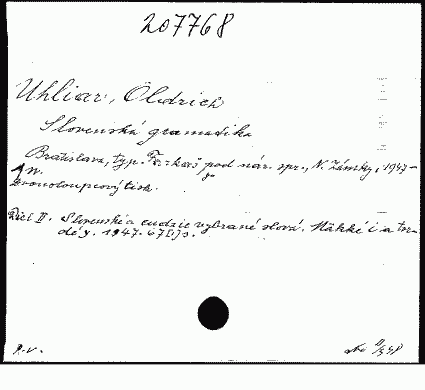 207768
Uhliar, Oldrich
Slovenská gramatika
Bratislava, typ. Farkaš pod nár. spr., N. Zámky, 1947-
4°. 
Dvoustoupcový tisk.
Diel II. Slovenské a cudzie vybrané slová. Mäkké i a tvr-
dé y. 1947. 67[1] s.
R.V.